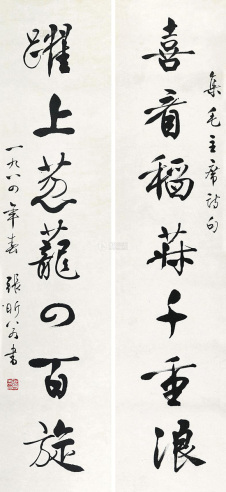 集毛主席詩句
喜看稻菽千重浪
躍上葱蘢四百旋
一九八四年春 張昕書